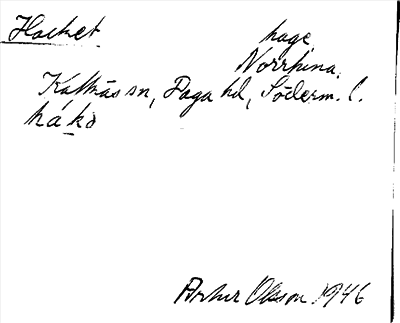 Hacket hage
Norrhina.
Kattnäs sn, Daga hd, Söderm. l.
hákə
Artur Olsson 1946